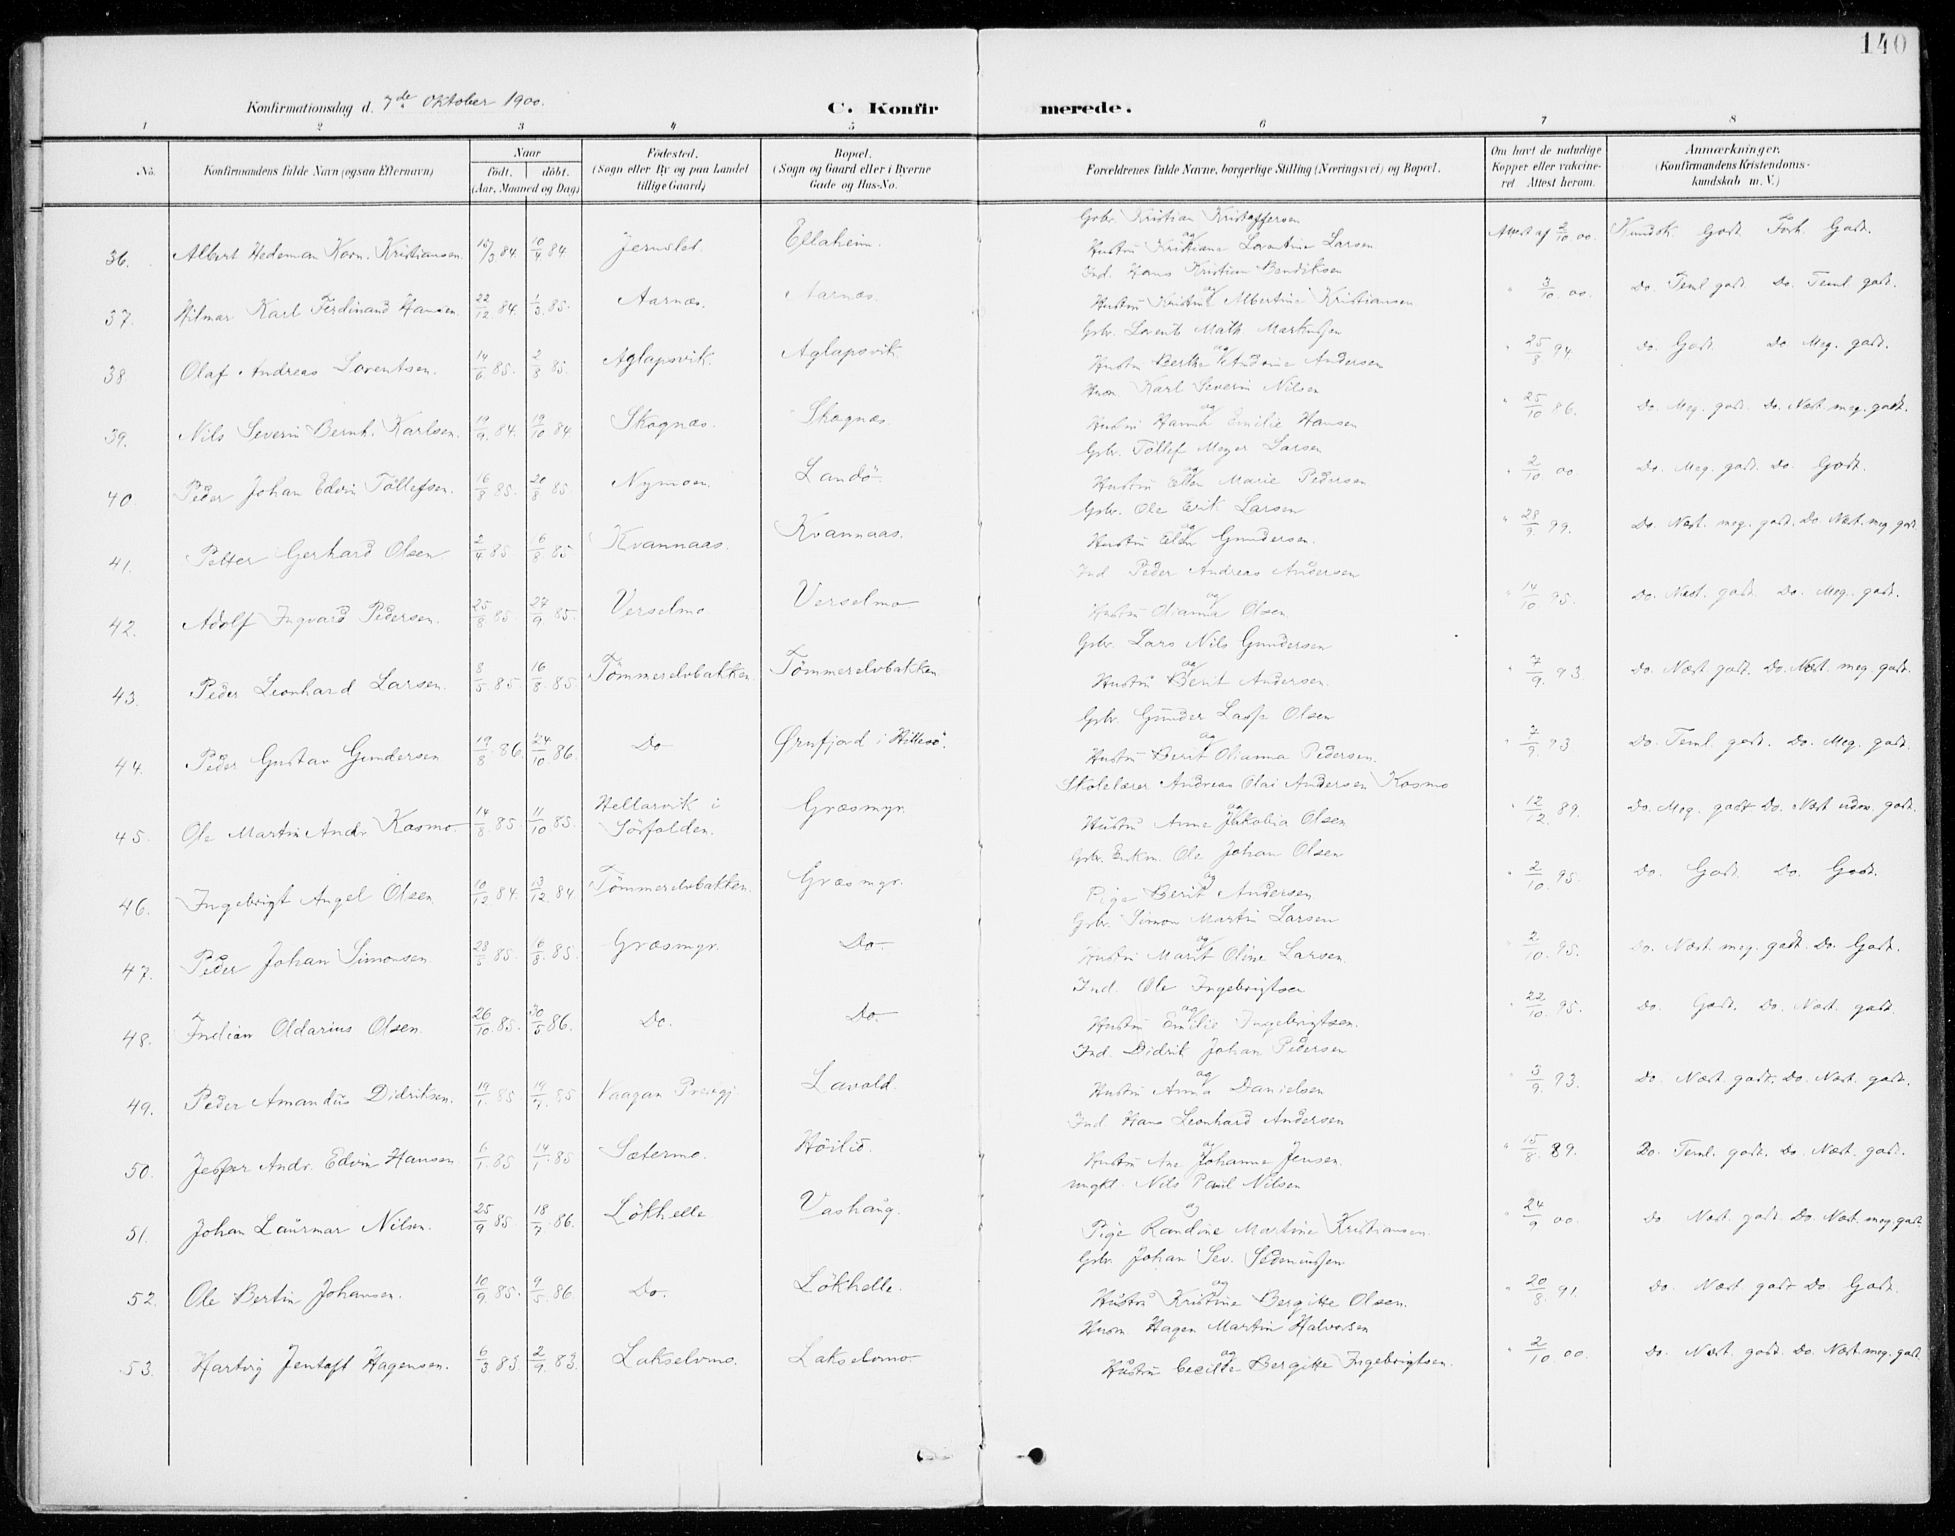 140
Konfirmationsdag d. 7de Oktober 1900.
C. Konfirmerede.
1 2 3 4 5 6 7 8
No. Konfirmandens fulde Navn (ogsaa Efternavn) Naar født. døbt. (Aar, Maaned og Dag) Fødested. (Sogn eller By og paa Landet tillige Gaard) Bopæl. (Sogn og Gaard eller i Byerne Gade og Hus-No. Forældrenes fulde Navne, borgerlige Stilling (Næringsvei) og Bopæl. Om havt de naturlige Kopper eller vakcineret Attest herom. Anmærkninger. (Konfirmandens Kristendomskundskab m. V.)
Gbr. Kristian Kristoffersen
36. Albert Hedeman Korn. Kristiansen 15/3 84. 10/4 84 Jernslet. Ellaheim. og Hustru Kristiane Lorentine Larsen Attest af 2/10 00. Kundsk. Godt. Forh. Godt.
Ind. Hans Kristian Bendiksen
37. Hilmar Karl Ferdinand Hansen. 22/12 84. 1/3 85. Aarnæs. Aarnæs. og Hustru Albertine Kristiansen " 3/10 00. Do. Teml. godt. Do. Teml. godt.
Gbr. Lorents Math. Markussen
38 Olaf Andreas Lorentsen. 14/6 85. 2/8 85. Aglapsvik. Aglapsvik og Hustru Berthe Andersen " 25/8 94. Do. Godt. Do. Meg. godt.
Husm. Karl Severin Nilsen
39. Nils Severin Bernh. Karlsen. 19/9 84. 19/10 84 Skognæs. Skognæs. og Hustru Hanna Emilie Hansen " 25/10 86. Do. Meg. godt. Do. Næst. meg. godt.
Gbr. Tollef Meyer Larsen
40. Peder Johan Edvin Tøllefsen. 16/3 85. 20/8 85 Nymoen. Landö. og Hustru Ellen Marie Pedersen " 2/10 00. Do. Meg. godt. Do. Godt.
Gbr. Ole Erik Larsen
41. Petter Gerhard Olsen 2/4 85 16/8 85 Kvannaas. Kvannaas. og Hustru Gundersen. " 28/9. 99. Do. Næst. meg. godt. Do. Næst. meg. godt.
Ind Peder Andreas Andersen
42. Adolf Ingvard Pedersen. 25/8 85. 27/9 85. Verselmo Verselmo og Hustru Olianna Olsen " 14/10 95. Do. Næst. godt. Do. Meg. godt.
Gbr. Lars Nils Gundersen
43. Peder Leonhard Larsen. 8/5 85 16/8 85. Tömmerelvbakken. Tömmerelvbakken og Hustru Berit Andersen. " 7/9. 93. Do. Næst godt. Do. Næst. meg. godt.
Gbr. Gunder Lasse Olsen
44. Peder Gustav Gundersen 19/8 86. 24/10 86. Do Ørnfjord i Hillesö. og Hustru Berit Olianna Pedersen. " 7/9. 93 Do. Teml. godt. Do. Meg. godt.
Skolelærer Andreas Olai Andersen Kosmo
45. Ole Martin Andr. Kosmo 14/8 85. 11/10 85. Hellarvik i Sörfolden. Græsmyr. og Hustru Anne Jakobia Olsen " 12/12 89. Do. Meg. godt Do. Næst udm. godt.
Gbr. Enkm. Ole Johan Olsen
46. Ingebrigt Angel Olsen 10/12 84. 13/12 84. Tömmerelvbakken. Græsmyr. og Pige Berit Andersen " 2/10 95. Do. Godt. Do. Godt.
Gbr. Simon Martin Larsen
47. Peder Johan Simonsen 85. 16/8 85. Græsmyr. Do. og Hustru Marit Oline Larsen " 2/10. 95. Do. Næst. meg. godt. Do. Godt.
Ind. Ole Ingebrigtsen
48. Indian Oldarius Olsen. 26/10 85. 30/5 86. Do. Do. og Hustru Emilie Ingebrigtsen. " 22/10. 95. Do. Godt. Do. Næst. godt.
Ind. Didrik Johan Pedersen
49. Peder Amandus Didriksen. 19/1. 85. 85 Vaagan Præstgj. Lavold. og Hustru Anna Danielsen " 3/9 93. Do. Næst. godt. Do. Næst. godt.
Ind Hans Leonhard Andersen
50. Jesper Andr. Edvin Hansen 6/1. 85 14/1. 85 Sætermo. Höilid. og Hustru Ane Johanna Jensen. " 15/8. 89. Do. Teml. godt. Do. Næst. godt.
ungkl. Nils Paul Nilsen
51. Johan Laurmar Nilsen. 25/9 85. 18/7. 86. Lökhelle Vashaug. og Pige Randine Martine Kristiansen " 24/9 00. Do Næst. godt Do. Næst. meg. godt.
Gbr. Johan Sev. Sedmundsen
52. Ole Bertin Johansen. 10/9 85. 9/5. 86 Do. Lökhelle. og Hustru Kristine Bergitte Olsen. " 20/8. 91. Do. Næst godt Do. Godt.
Husm Hagen Martin Halvorsen
53. Hartvig Jentoft Hagensen. 6/3 83 2/9. 83. Lakselvmo. Lakselvmo. og Hustru Cecilie Bergitte Ingebrigtsen. " 2/10. 00. Do. Næst. godt. Do. Næst. meg. godt.